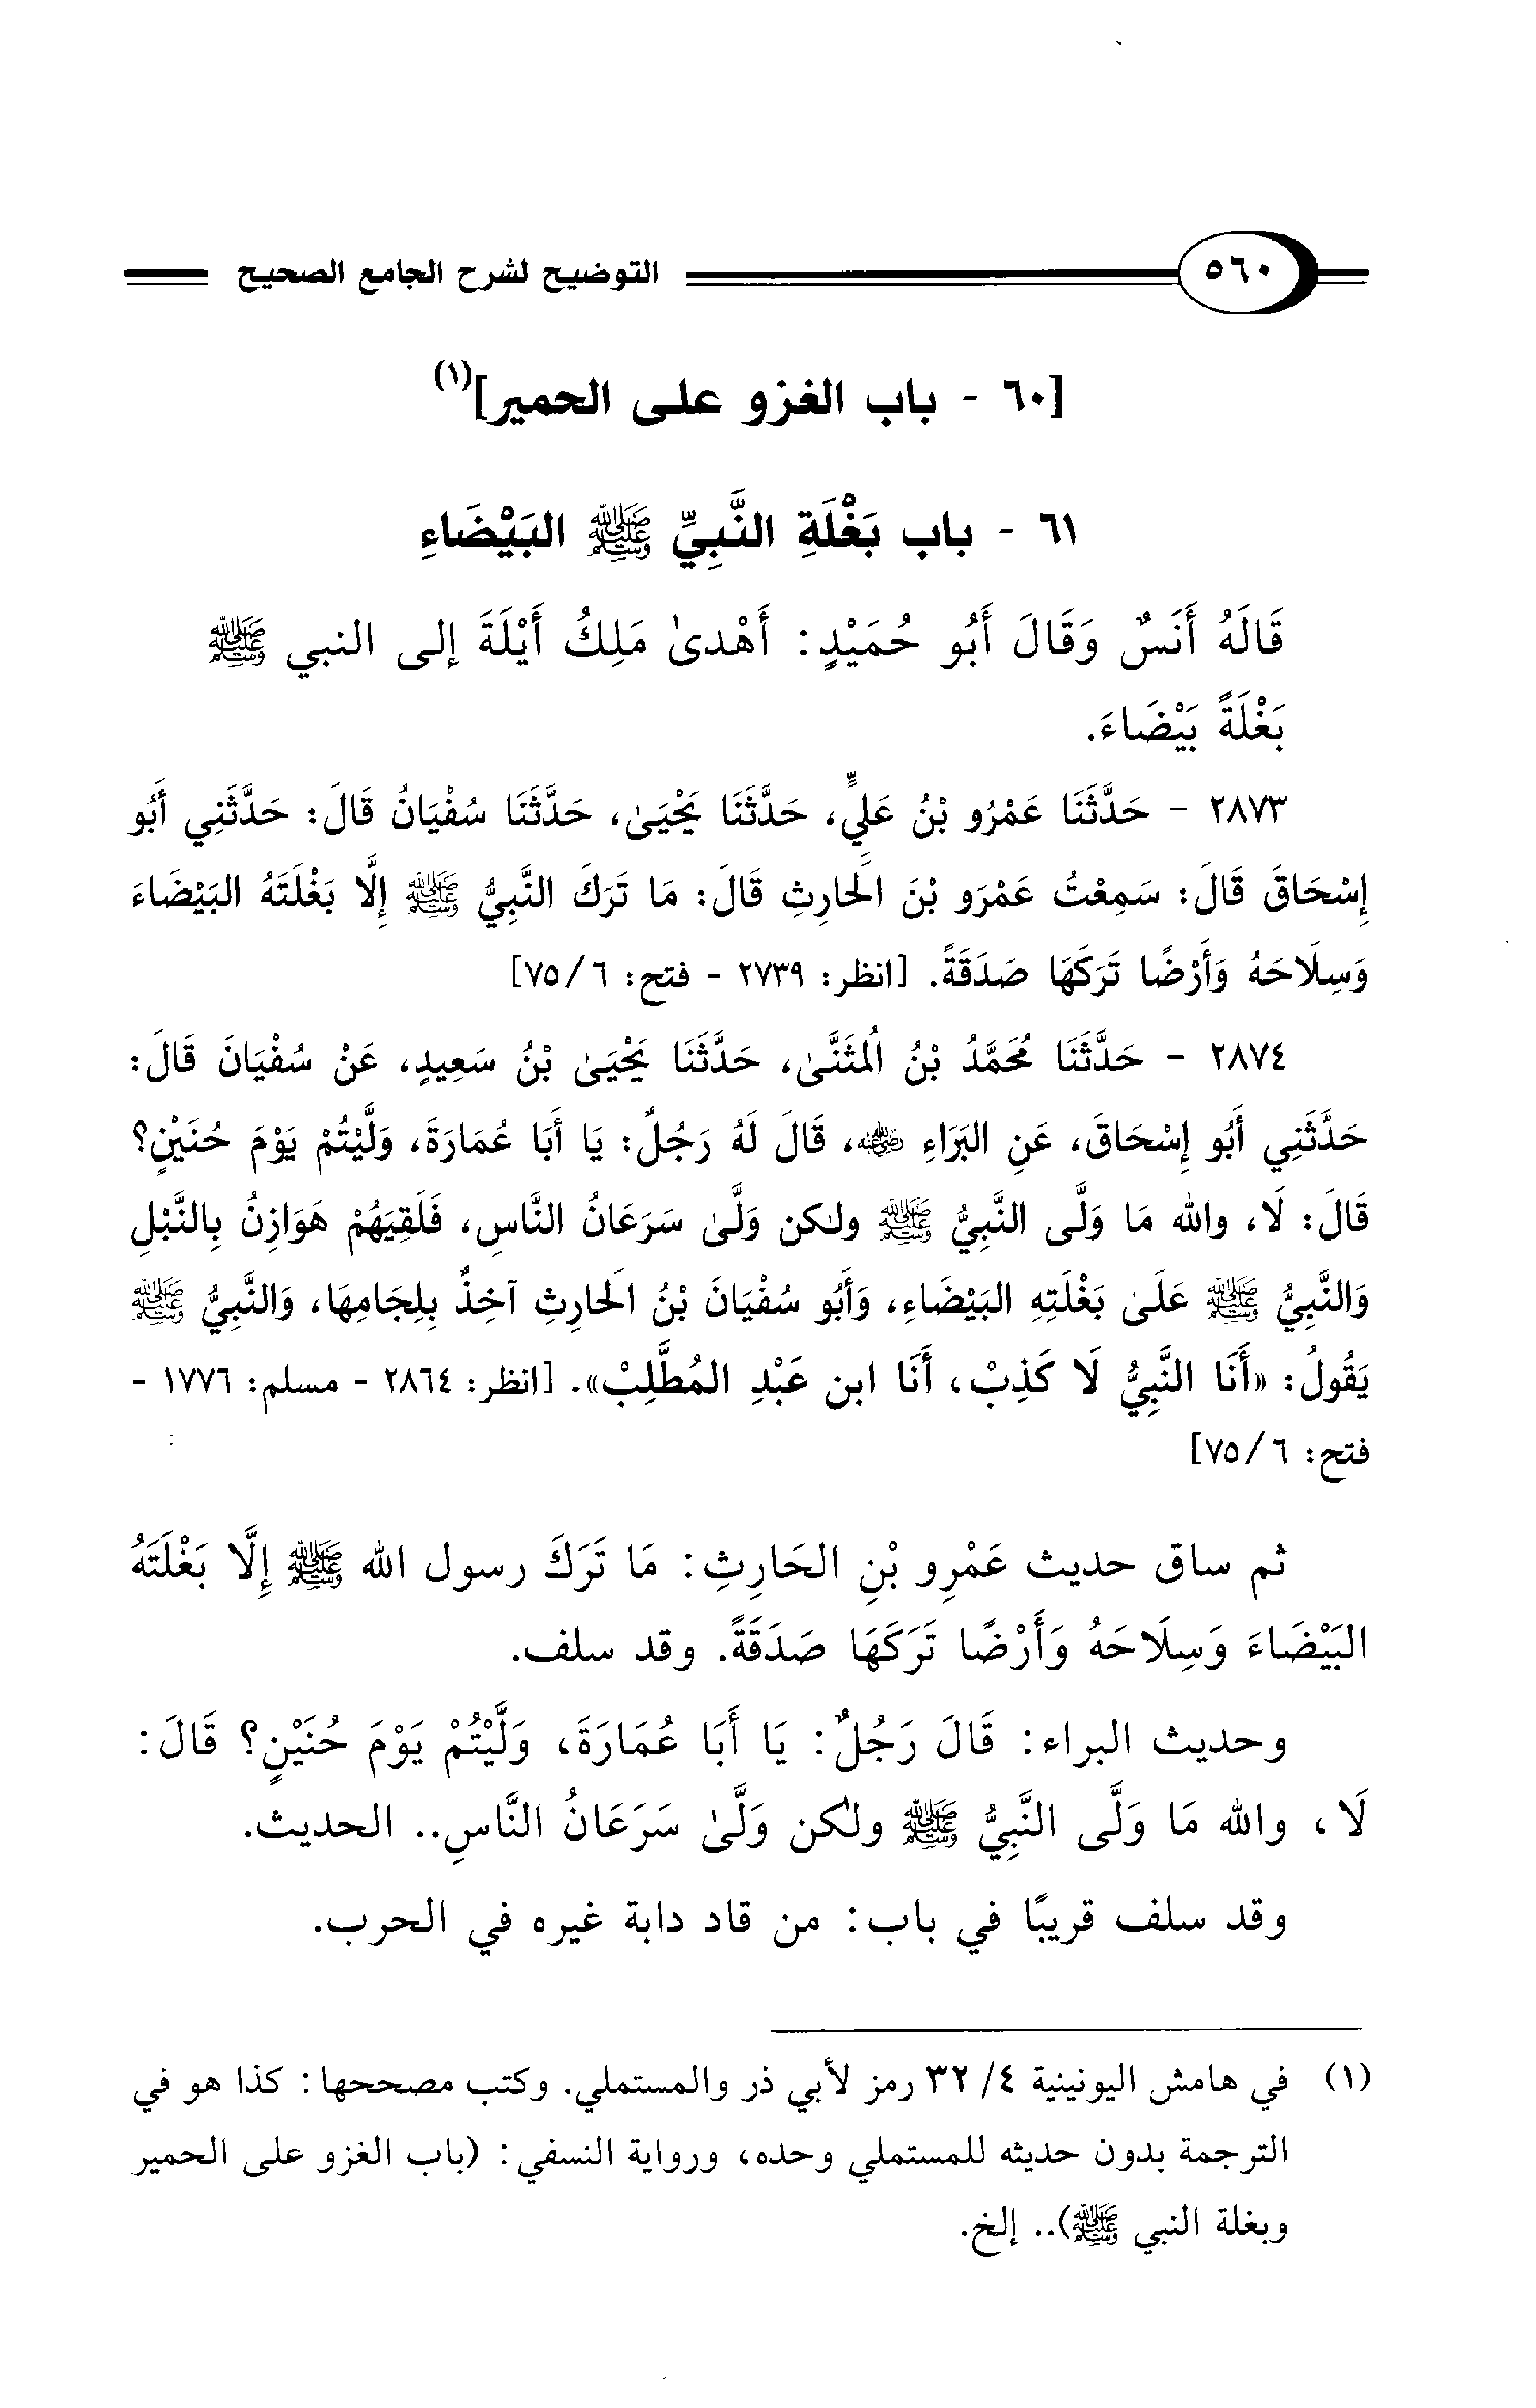 ٥٦٠ التوضيح لشرح الجامع الصحيح
[٦٠ - باب الغزو على الحمير](١)
٦١ - باب بَغْلَةِ النَّبِيِّ ﷺ البَيْضَاءِ
قَالَهُ أَنَسٌ وَقَالَ أَبُو حُمَيْدٍ: أَهْدىٰ مَلِكُ أَيْلَةَ إلى النبي ﷺ
بَغْلَةً بَيْضَاءَ.
٢٨٧٣ - حَدَّثَنَا عَمْرُو بْنُ عَلِيٍّ، حَدَّثَنَا يَحْيَىٰ، حَدَّثَنَا سُفْيَانُ قَالَ: حَدَّثَنِي أَبُو
إِسْحَاقَ قَالَ: سَمِعْتُ عَمْرَو بْنَ الَحارِثِ قَالَ: مَا تَرَكَ النَّبِيُّ ﷺ إِلَّا بَغْلَتَهُ البَيْضَاءَ
وَسِلَاحَهُ وَأَرْضًا تَرَكَهَا صَدَقَةً. [انظر: ٢٧٣٩ - فتح: ٦ /٧٥]
٢٨٧٤ - حَدَّثَنَا مُحَمَّدُ بْنُ المُثَنَّىٰ، حَدَّثَنَا يَحْيَىٰ بْنُ سَعِيدٍ، عَنْ سُفْيَانَ قَالَ:
حَدَّثَنِي أَبُو إِسْحَاقَ، عَنِ البَرَاءِ ﵁، قَالَ لَهُ رَجُلٌ: يَا أَبَا عُمَارَةَ، وَلَّيْتُمْ يَوْمَ حُنَيْنٍ؟
قَالَ: لَا، والله مَا وَلَّى النَّبِيُّ ﷺ ولٰكن وَلَّىٰ سَرَعَانُ النَّاسِ، فَلَقِيَهُمْ هَوَازِنُ بِالنَّبْلِ
وَالنَّبِيُّ ﷺ عَلَىٰ بَغْلَتِهِ البَيْضَاءِ، وَأَبُو سُفْيَانَ بْنُ الَحارِثِ آخِذٌ بِلِجَامِهَا، وَالنَّبِيُّ ﷺ
يَقُولُ: «أَنَا النَّبِيُّ لَا كَذِبْ، أَنَا ابن عَبْدِ المُطَّلِبْ». [انظر: ٢٨٦٤ - مسلم: ١٧٧٦ -
فتح: ٦ /٧٥]
ثم ساق حديث عَمْرِو بْنِ الحَارِثِ: مَا تَرَكَ رسول الله ﷺ إِلَّا بَغْلَتَهُ
البَيْضَاءَ وَسِلَاحَهُ وَأَرْضًا تَرَكَهَا صَدَقَةً. وقد سلف.
وحديث البراء: قَالَ رَجُلٌ: يَا أَبَا عُمَارَةَ، وَلَّيْتُمْ يَوْمَ حُنَيْنٍ؟ قَالَ:
لَا، والله مَا وَلَّى النَّبِيُّ ﷺ ولٰكن وَلَّىٰ سَرَعَانُ النَّاسِ.. الحديث.
وقد سلف قريبًا في باب: من قاد دابة غيره في الحرب.
(١) في هامش اليونينية ٤/ ٣٢ رمز لأبي ذر والمستملي. وكتب مصححها: كذا هو في
الترجمة بدون حديثه للمستملي وحده، ورواية النسفي: (باب الغزو على الحمير
وبغلة النبي ﷺ).. إلخ.